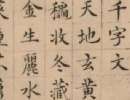 千字文
天地玄黃
穐收冬藏
金生麗水